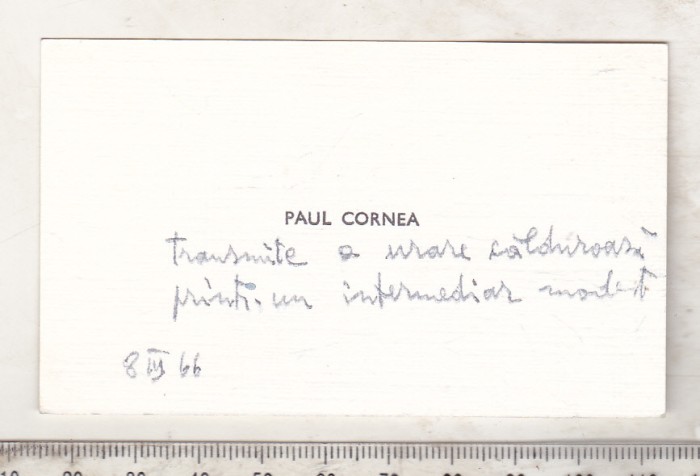 PAUL CORNEA
transmite o urare călduroasă
printr-un intermediar modest
8 III 66
10 20 30 40 50 60 70 80 90 100 110